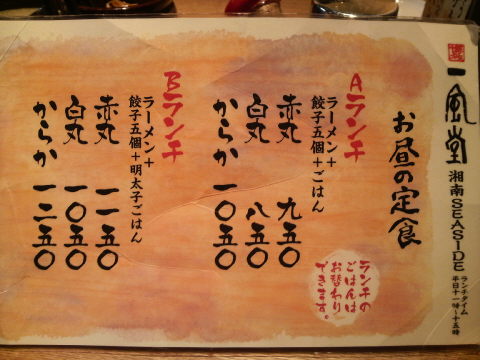 一風堂 湘南SEASIDE
ランチタイム
平日十一時~十五時
お昼の定食
Aランチ
ラーメン+
餃子五個+ごはん
赤丸 九五〇
白丸 八五〇
からか 一〇五〇
ランチの
ごはんは
お替わり
できます。
Bランチ
ラーメン+
餃子五個+明太子ごはん
赤丸 一一五〇
白丸 一〇五〇
からか 一二五〇